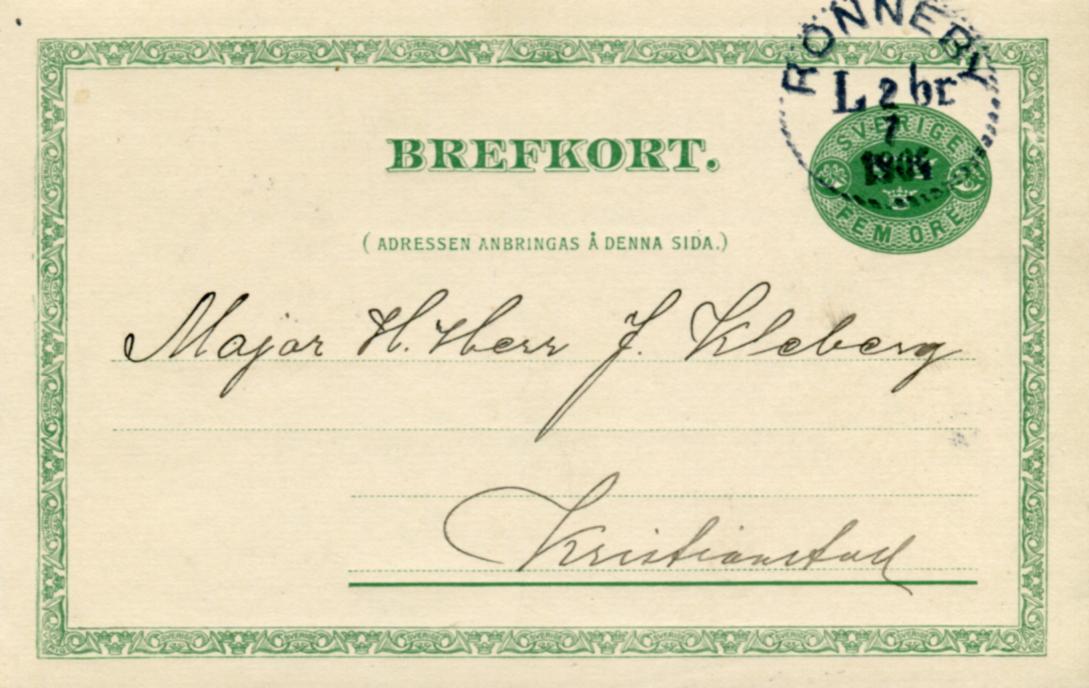 RONNEBY
L 2 br
7
1904
SVERIGE
FEM ÖRE
BREFKORT.
(ADRESSEN ANBRINGAS Å DENNA SIDA.)
Major H. Herr J. Kleberg
Kristianstad